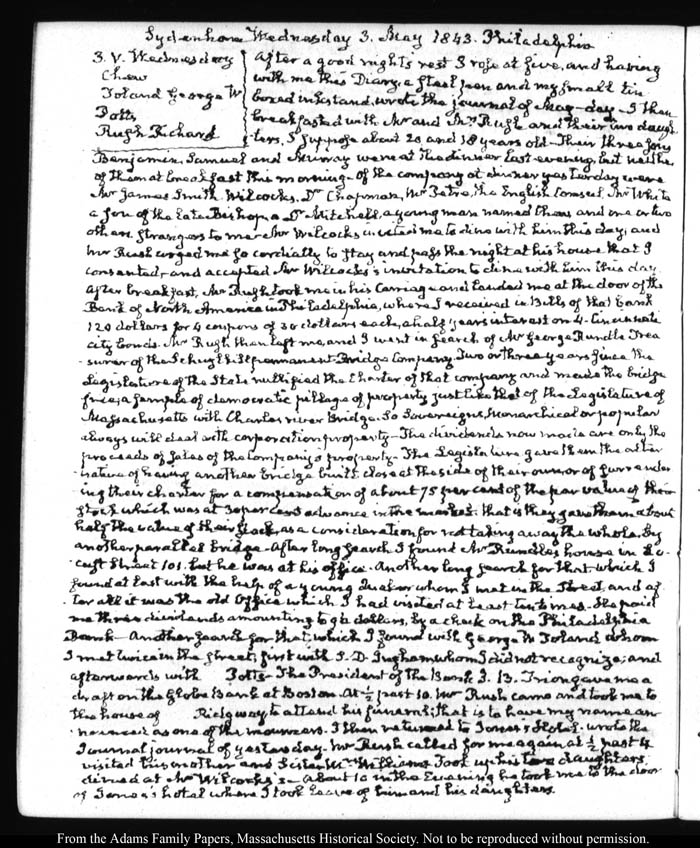 Sydenham Wednesday 3. May 1843. Philadelphia
3. V. Wednesday
Chew
Toland George W
Potts
Rush Richard
After a good night's rest I rose at five, and having
with me this Diary, a steel pen and my small tin
boxed inkstand, wrote the journal of May-day – I then
breakfasted with Mr and Mrs Rush and their two daugh-
ters, I suppose about 20 and 18 years old – Their three sons
Benjamin, Samuel and Murray were at the dinner last evening, but neither
of them at breakfast this morning – of the company at dinner yesterday were
Mr James Smith Wilcocks, Dr Chapman, Mr Petre, the English Consul, Mr White
a son of the late Bishop, a Dr Mitchell, a young man named Chew and one or two
others strangers to me – Mr Wilcocks invited me to dine with him this day; and
Mr Rush urged me so cordially to stay and pass the night at his house that I
consented, and accepted Mr Wilcocks's invitation to dine with him this day.
After breakfast, Mr Rush took me in his Carriage and landed me at the door of the
Bank of North America in Philadelphia, where I received in Bills of that bank
120 dollars for 4 coupons of 30 dollars each, a half years interest on 4 Cincinnati
city bonds. Mr Rush then left me, and I went in search of Mr George Rundle Trea
surer of the Schuylkill permanent Bridge Company. Two or three years since the
Legislature of the State nullified the Charter of that company and made the bridge
free; a sample of democratic pillage of property just like that of the Legislature of
Massachusetts with Charles river Bridge. So Sovereigns, Monarchical or popular
always will deal with corporation property – The dividends now made are only the
proceeds of sales of the Company's property – The Legislature gave them the alter
native of having another bridge built close at the side of their own, or of surrender
ing their charter for a compensation of about 75 per cent of the par value of their
stock which was at 30 per cent advance in the market: that is they gave them about
half the value of their stock, as a consideration for not taking away the whole, by
another parallel bridge – After long search I found Mr Rundle's house in Lo-
cust Street 101. but he was at his office. Another long search for that, which I
found at last with the help of a young Quaker whom I met in the Street, and af
ter all it was the old Office which I had visited at least ten times. He paid
me three dividends amounting to 96 dollars, by a check on the Philadelphia
Bank – Another search for that, which I found with George W Toland whom
I met twice in the street; first with S. D. Ingham whom I did not recognize; and
afterwards with Potts – The President of the Bank J. B. Trevor gave me a
draft on the Globe Bank at Boston. At ½ past 10. Mr Rush came and took me to
the house of Ridgway to attend his funeral; that is to have my name an-
nounced as one of the mourners. I then returned to Jones's Hotel. wrote the
Journal journal of yesterday. Mr Rush called for me again at ½ past 4
visited his mother and Sister Mrs Williams Took up his two daughters;
dined at Mr Wilcocks's – About 10 in the Evening he took me to the door
of Jones's hotel where I took leave of him and his daughters.
From the Adams Family Papers, Massachusetts Historical Society. Not to be reproduced without permission.